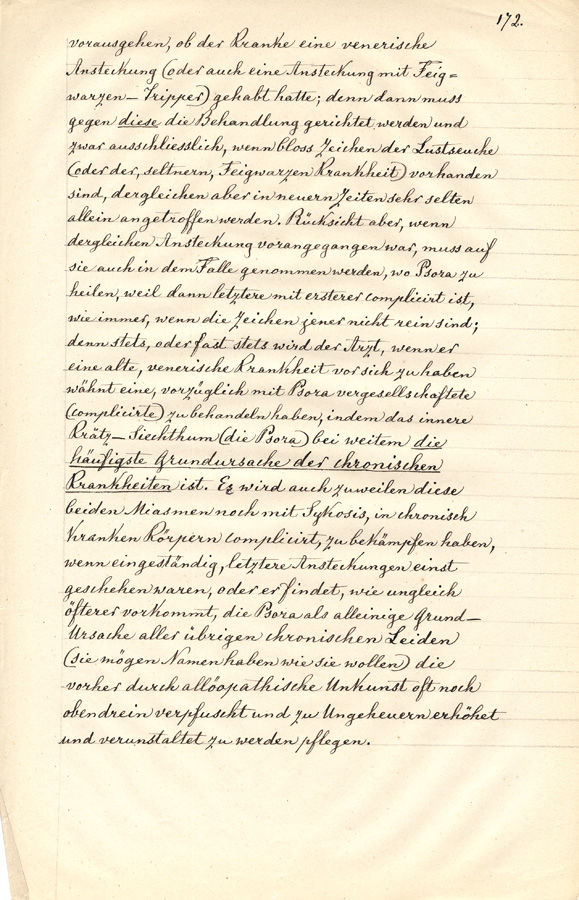 172.
vorausgehen, ob der Kranke eine venerische
Ansteckung (oder auch eine Ansteckung mit Feig=
warzen – Tripper) gehabt hatte; denn dann muss
gegen diese die Behandlung gerichtet werden und
zwar ausschliesslich, wenn bloss Zeichen der Lustseuche
(oder der, seltnern, Feigwarzen Krankheit) vorhanden
sind, dergleichen aber in neuern Zeiten sehr selten
allein angetroffen werden. Rücksicht aber, wenn
dergleichen Ansteckung vorangegangen war, muss auf
sie auch in dem Falle genommen werden, wo Psora zu
heilen, weil dann letztere mit ersterer complicirt ist,
wie immer, wenn die Zeichen jener nicht rein sind;
denn stets, oder fast stets wird der Arzt, wenn er
eine alte, venerische Krankheit vor sich zu haben
wähnt eine, vorzüglich mit Psora vergesellschaftete
(complicirte) zu behandeln haben, indem das innere
Krätz – Siechthum (die Psora) bei weitem die
häufigste Grundursache der chronischen
Krankheiten ist. Er wird auch zuweilen diese
beiden Miasmen noch mit Sykosis, in chronisch
kranken Körpern complicirt, zu bekämpfen haben,
wenn eingeständig, letztere Ansteckungen einst
geschehen waren, oder er findet, wie ungleich
öfterer vorkommt, die Psora als alleinige Grund –
Ursache aller übrigen chronischen Leiden
(sie mögen Namen haben wie sie wollen) die
vorher durch allöopathische Unkunst oft noch
obendrein verpfuscht und zu Ungeheuern erhöhet
und verunstaltet zu werden pflegen.